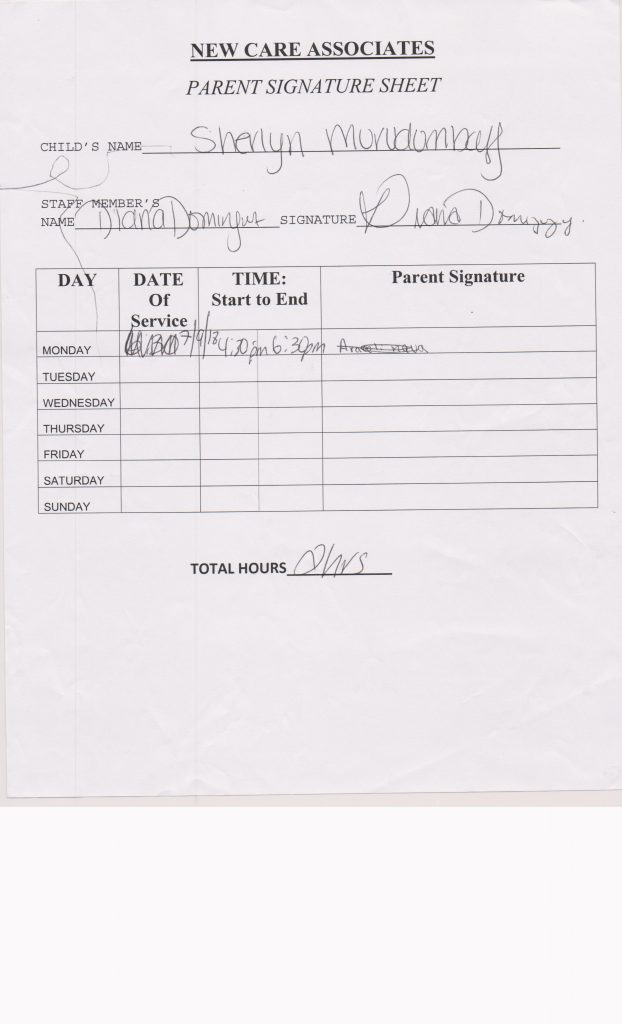 NEW CARE ASSOCIATES
PARENT SIGNATURE SHEET
CHILD'S NAME Sherlyn
STAFF MEMBER'S
NAME Diana SIGNATURE Diana
DAY DATE Of Service TIME: Start to End Parent Signature
MONDAY 7/9/13 4:30pm 6:30pm
TUESDAY
WEDNESDAY
THURSDAY
FRIDAY
SATURDAY
SUNDAY
TOTAL HOURS 2hrs